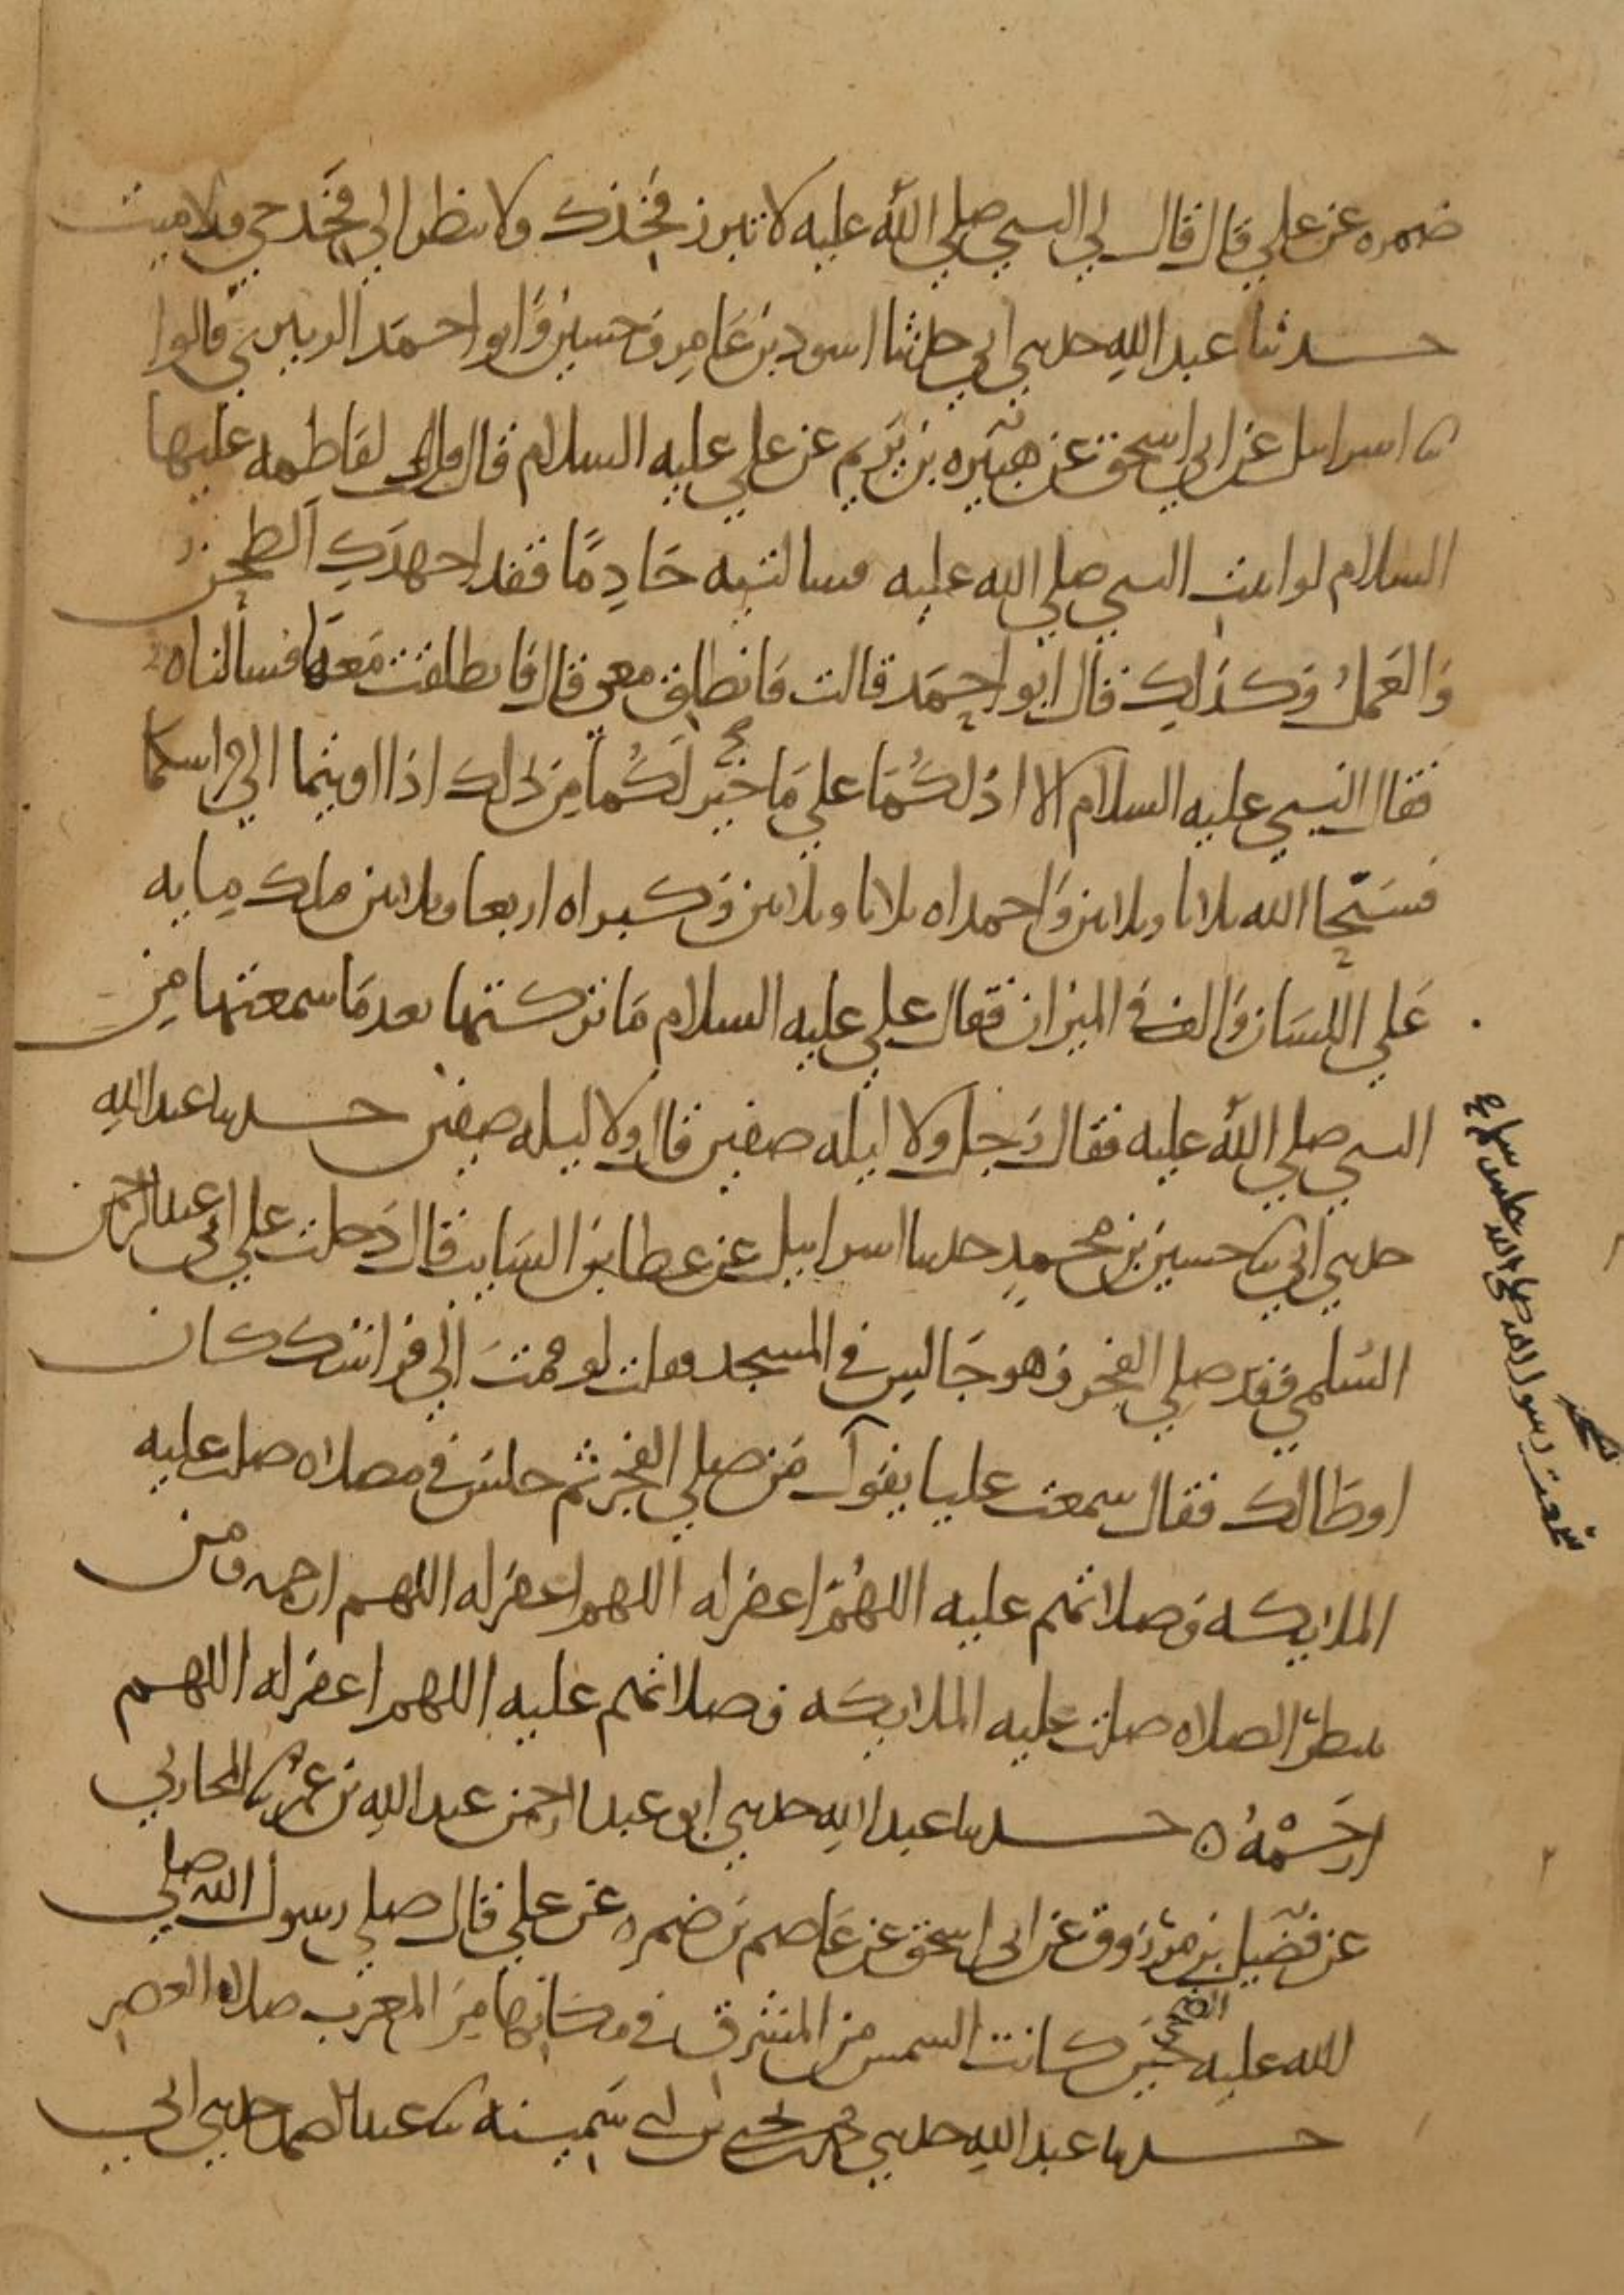 ضمره عن علي قال قال لي النبي صلي الله عليه لا تبرز فخذك ولا تنظر الي فخذ حي ولا ميت
حدثنا عبد الله حدثني ابي حدثنا اسود بن عامر وحسين وابو احمد الزبيري قالوا
ثنا اسرايل عن ابي اسحق عن هبيره بن يريم عن علي عليه السلام قال قلت لفاطمه عليها
السلام لو اتيت النبي صلي الله عليه فسالتيه خادما فقد اجهدك الطحن
والعمل وكذلك قال ابو احمد قالت فانطلق معي قال فانطلقت معها فسالناه
فقال النبي عليه السلام الا ادلكما علي ما خير لكما من ذلك اذا اويتما الي فراشكما
فسبحا الله ثلاثا وثلاثين واحمداه ثلاثا وثلاثين وكبراه اربعا وثلاثين فتلك مايه
علي اللسان والف في الميزان فقال علي عليه السلام ما تركتها بعد ما سمعتها من
النبي صلي الله عليه فقال رجل ولا ليله صفين قال ولا ليله صفين حدثنا عبد الله
حدثني ابي ثنا حسين بن محمد حدثنا اسراييل عن عطا بن السايب قال دخلت علي ابي عبد الرحمن
السلمي وقد صلي الفجر وهو جالس في المسجد فقلت لو قمت الي فراشك كان
اوطا لك فقال سمعت عليا يقول من صلي الفجر ثم جلس في مصلاه صلت عليه
الملايكه وصلاتهم عليه اللهم اغفر له اللهم اغفر له اللهم ارحمه ومن
ينتظر الصلاه صلت عليه الملايكه وصلاتهم عليه اللهم اغفر له اللهم
ارحمه ه حدثنا عبد الله حدثني ابو عبد الرحمن عبد الله بن عمر ثنا المحاربي
عن فضيل بن مرزوق عن ابي اسحق عن عاصم بن ضمره عن علي قال صلي رسول الله صلي
الله عليه الضحي حين كانت الشمس من المشرق في مكانها من المغرب صلاه العصر
حدثنا عبد الله حدثني محمد بن يحيي بن ابي سمينه ثنا عبد الصمد حدثني ابي
سمعت رسول الله صلى الله عليه وسلم